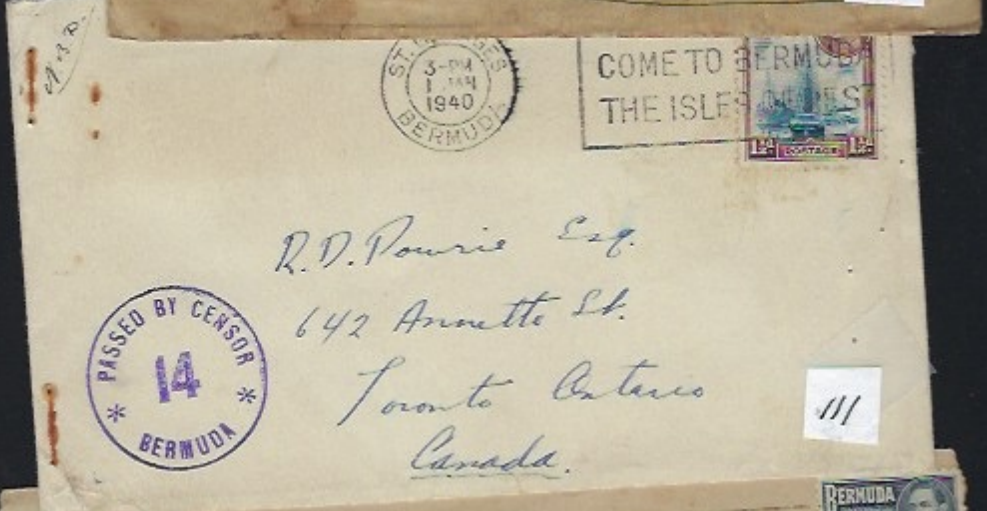 N.B.D.
ST. GEORGES
3-PM
1 JAN
1940
BERMUDA
COME TO BERMUDA
THE ISLES OF REST
1½d POSTAGE 1½d
R.D. Powrie Esq.
642 Annette St.
Toronto Ontario
Canada.
PASSED BY CENSOR
14
BERMUDA
111
BERMUDA